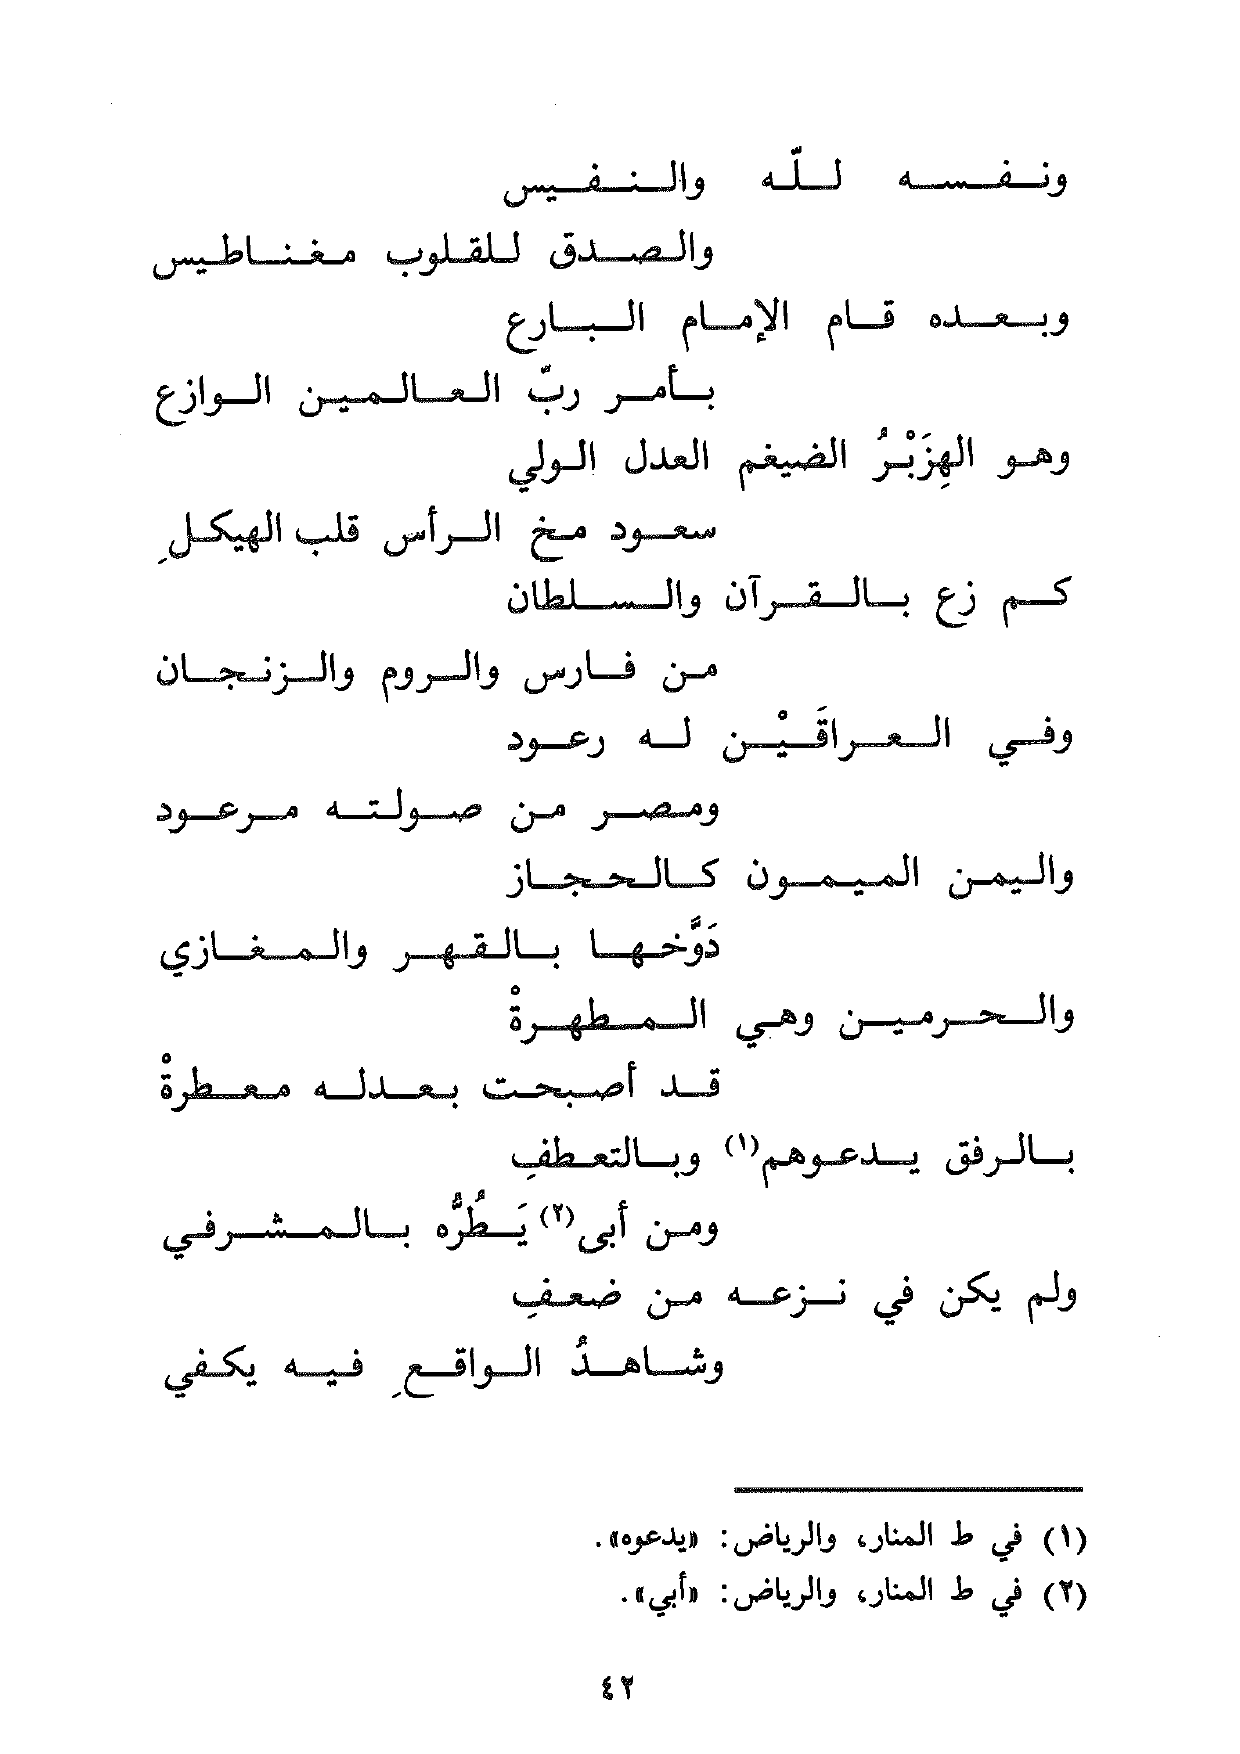 ونفسه للّه والنفيس
والصدق للقلوب مغناطيس
وبعده قام الإمام البارع
بأمر ربّ العالمين الوازع
وهو الهِزَبْرُ الضيغم العدل الولي
سعود مخ الرأس قلب الهيكلِ
كم زع بالقرآن والسلطان
من فارس والروم والزنجان
وفي العراقَيْن له رعود
ومصر من صولته مرعود
واليمن الميمون كالحجاز
دَوَّخها بالقهر والمغازي
والحرمين وهي المطهرةْ
قد أصبحت بعدله معطرةْ
بالرفق يدعوهم(١) وبالتعطفِ
ومن أبى(٢) يَطُرُّه بالمشرفي
ولم يكن في نزعه من ضعفِ
وشاهدُ الواقعِ فيه يكفي
(١) في ط المنار، والرياض: «يدعوه».
(٢) في ط المنار، والرياض: «أبي».
٤٢